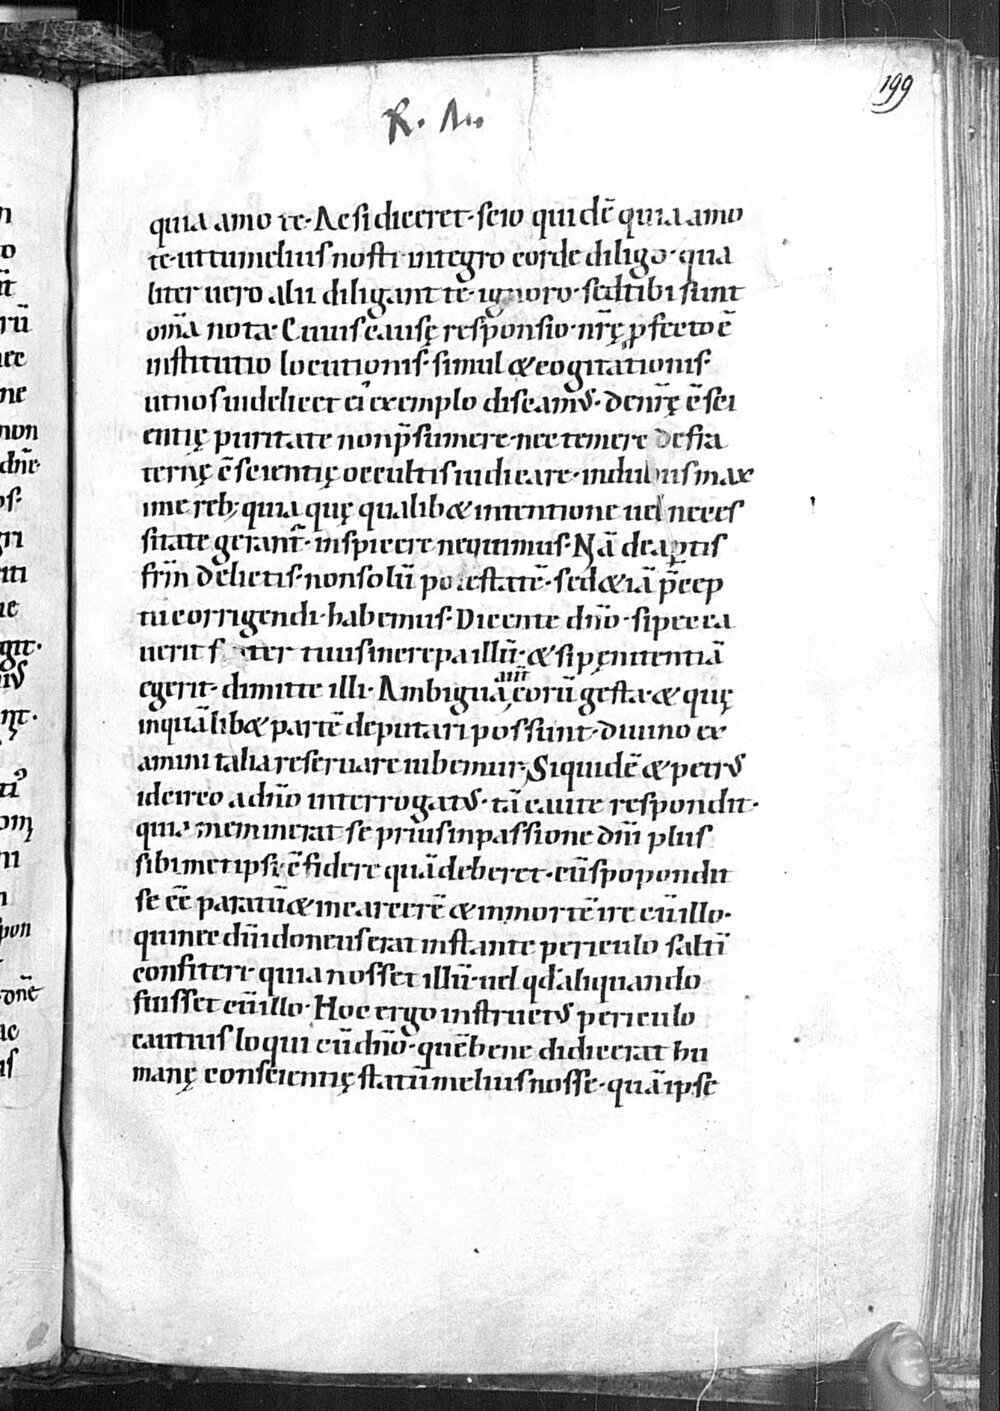 199
R. M.
quia amo te. Ac si diceret. scio quidē quia amo
te. ut tu melius nosti. integro corde diligo. qua
liter uero alii diligant te. ignoro. sed tibi sunt
om̄a nota. Cuius causę responsio. nr̄ę ꝓfecto ē
institutio locutionis. simul & cogitationis.
ut nos uidelicet ei' exemplo discam'. de nr̄ę c̄sci
entię puritate non p̄sumere. nec temere de fra
ternę c̄scientię occultis iudicare. in dubiis max
ime reb; quia quę qualib& intentione uel neces
sitate gerant̄. inspicere nequimus. Nā de aptis
fr̄m delictis. non solū potestatē. sed & iā p̄cep
tu corrigendi. habemus. Dicente dn̄o. si pecca
uerit frater tuus increpa illū. & si pęnitentiā
egerit. dimitte illi. Ambigua, aut̄ eorū gesta. & quę
in quālib& partē deputari possunt. diuino ex
amini talia reseruare iubemur; Siquidē & petr'
idcirco a dn̄o interrogat'. tā caute respondit.
quia meminerat se prius in passione dn̄i plus
sibimet ipsi c̄fidere quā deberet. cū spopondit
se ēē paratū & in carcerē & in mortē ire cū illo.
qui necdū idoneus erat instante periculo saltī
confiteri. quia nosset illū. uel qd̄ aliquando
fuisset cū illo. Hoc ergo instruct' periculo
cautius loqui cū dn̄o. quē bene didicerat hu
manę conscientię statū melius nosse. quā ipse